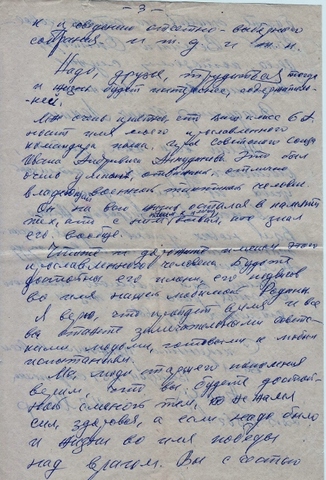 - 3 -
к и сведению отчетно - выборного
собрания и т. д. и т. п.
Надо, друзья, трудиться тогда
и жизнь будет интереснее, содержательн-
ней.
Мне очень приятно, что ваш класс 6 А
носит имя моего прославленного
командира полка, Героя Советского Союза
Ивана Андреевича Это был
очень умный, отважный, отлично
владеющий военным человек
Он на всю жизнь остался в памяти
тех, кто с ним бывал, кто знал
его вообще.
Чтите и дорожите именем этого
прославленного человека. Будьте
достойны его имени его подвигов
во имя нашей любимой Родины.
Я верю, что придёт время и все
вы станете замечательными советс-
кими людьми, готовыми к любым
испытаниям.
Мы, люди старшего поколения
верим, что вы будете достой-
ной сменой тем, кто не жалел
сил, здоровья, а если надо было
и жизни во имя победы
над врагом. Вы с честью